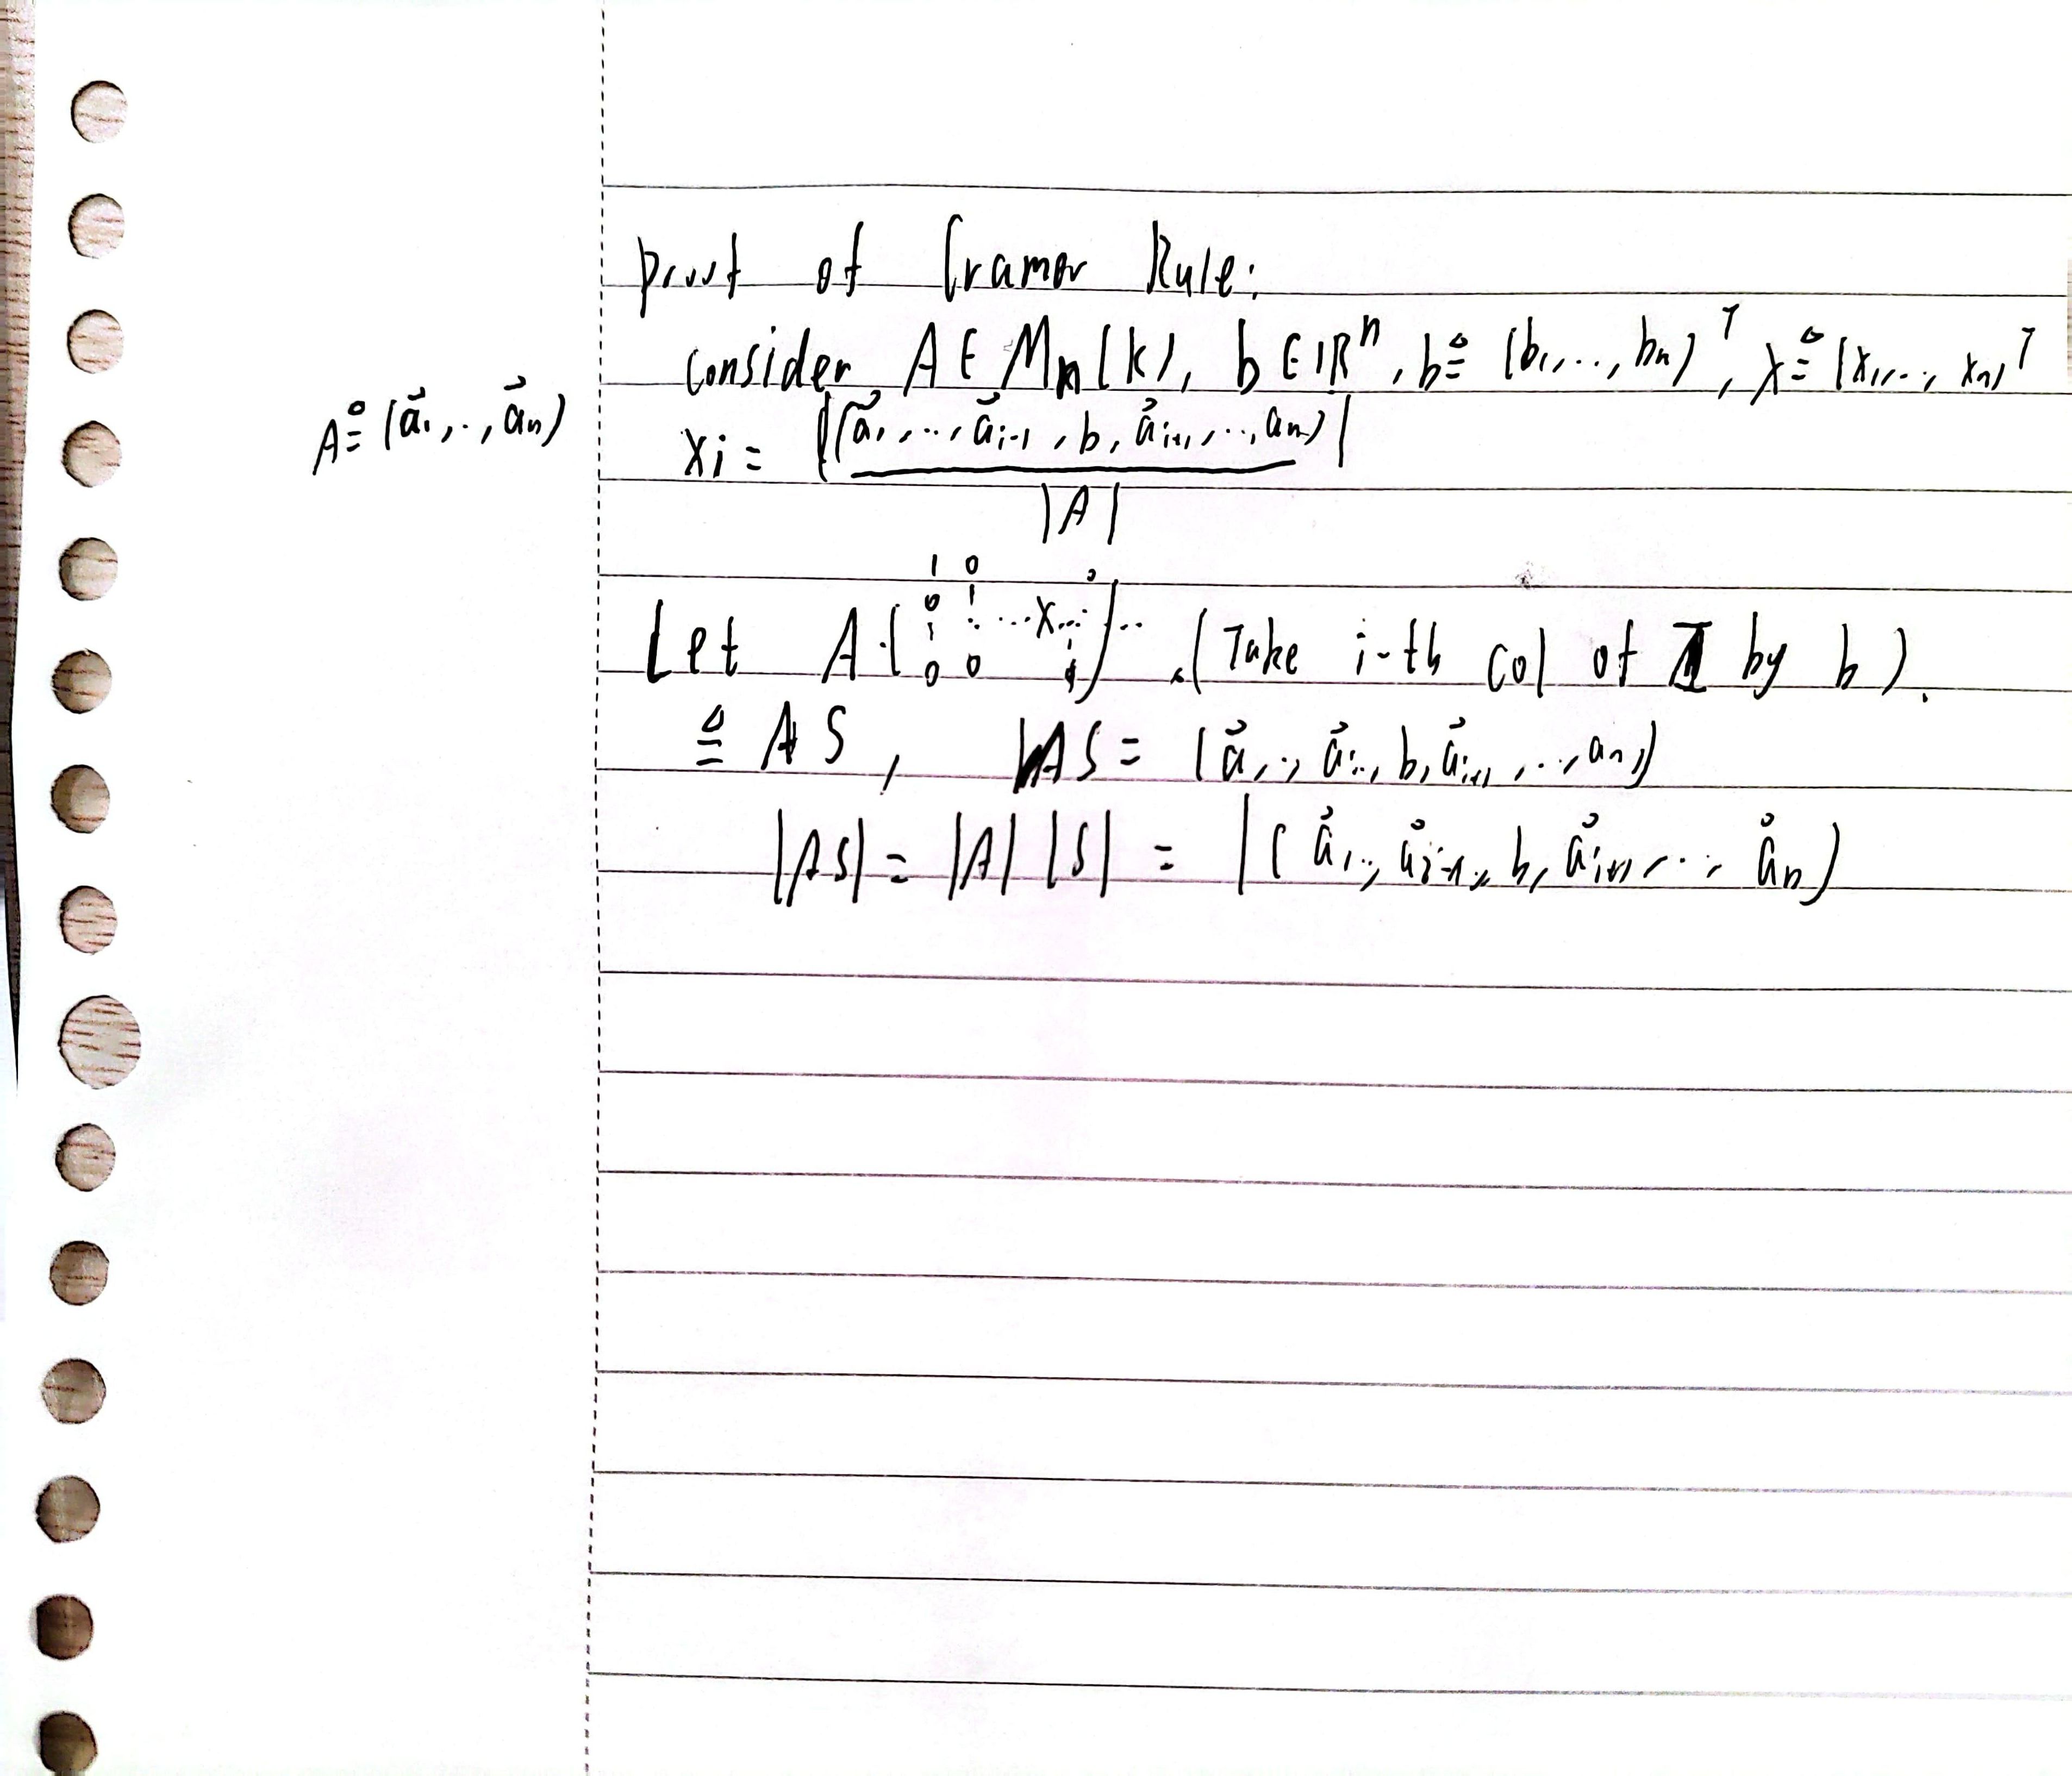 proof of Cramer Rule:
consider A ∈ Mn(k), b ∈ IR^n, b ≜ (b1,..., bn)^T, x ≜ (x1,..., xn)^T
A ≜ (a⃗1,.., a⃗n)
xi = |(a⃗1,..., a⃗i-1, b, a⃗i+1,..., an)|
|A|
1 0
0 1 ... x ...
Let A·( ) .. (Take i-th col of I by b).
0 0
≜ AS, AS = (a⃗1,.., a⃗i.., b, a⃗i+1,..., an)
|AS| = |A| |S| = |(a⃗1.., a⃗i-1, b, a⃗i+1,..., a⃗n)